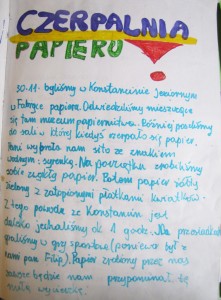 CZERPALNIA
PAPIERU
30.11. byliśmy w Konstancinie Jeziornym
w Fabryce papieru. Odwiedziliśmy mieszczące
się tam muzeum papiernictwa. Później poszliśmy
do sali w której kiedyś czerpało się papier.
Pani wybrała nam sito ze znakiem
wodnym: syrenką. Na początku zrobiliśmy
sobie zwykły papier. Potem papier żółty
zielony z zatopionymi płatkami kwiatków.
Z tego powodu ze Konstancin jest
daleko jechaliśmy ok 1 godz. Na przystanku
graliśmy w gry sportowe (ponieważ był z
nami pan Filip). Papier zrobiony przez nas
zawsze będzie nam przypominał tę
miłą wycieczkę.